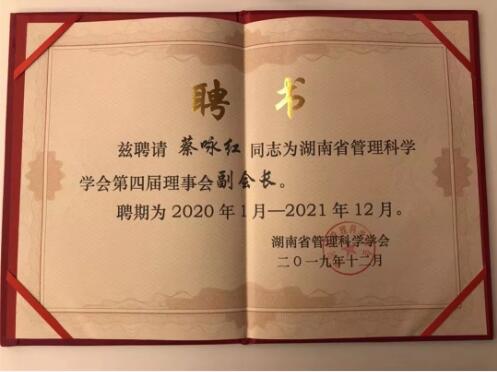 聘书
兹聘请 蔡咏红 同志为湖南省管理科学
学会第四届理事会副会长。
聘期为2020年1月—2021年12月。
湖南省管理科学学会
二〇一九年十二月